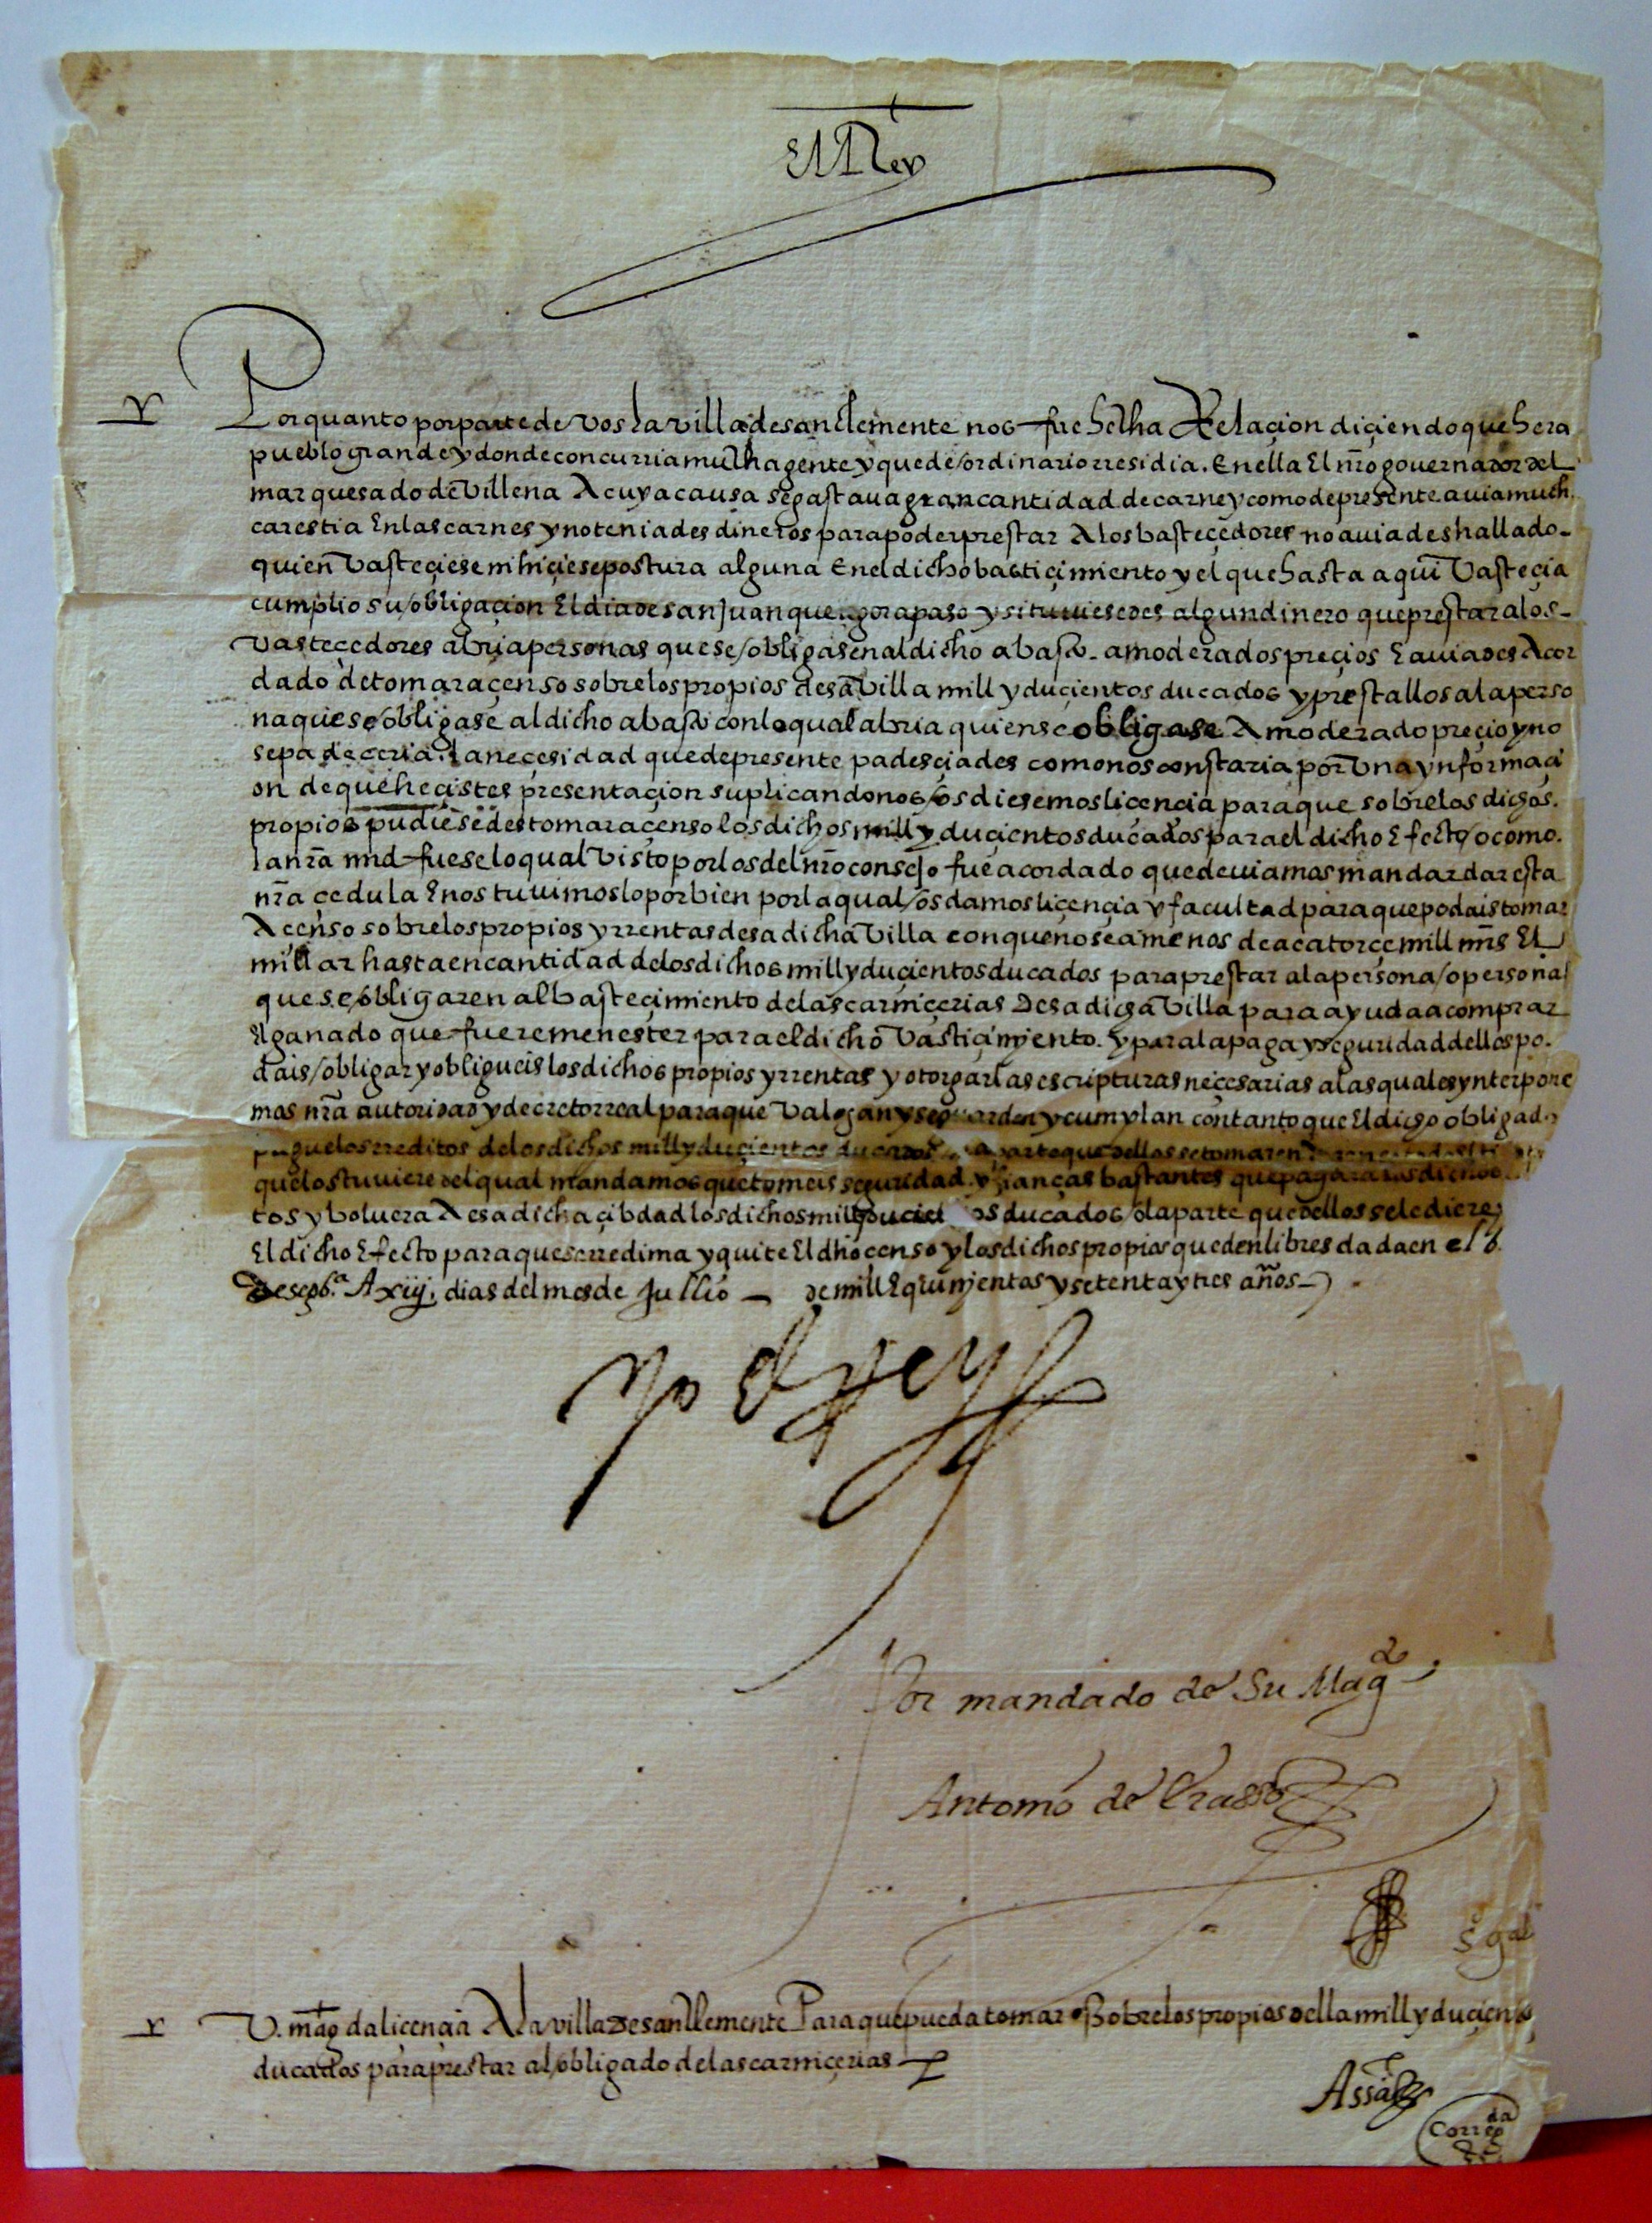 El Rey
Por quanto por parte de vos la villa de san clemente nos fue hecha Relaçion diçiendo que hera
pueblo grande y donde concurria mucha gente y que de ordinario rresidia. En ella El nro governador del
marquesado de Villena A cuya causa se gastaua gran cantidad de carne y como de presente auia much
carestia En las carnes y no teniades dineros para poder prestar A los basteçedores no auiades hallado
quien basteçiese ni hiçiese postura alguna En el dicho basticimiento y el que hasta aqui Vasteçia
cumplio su obligaçion El dia de san Juan que agora paso y si tuuiesedes algun dinero que prestar a los
vasteçedores abria personas que se obligasen al dicho abasto a moderados preçios E auiades Acor
dado de tomar a çenso sobre los propios desa Villa mill y duçientos ducados y prestallos a la perso
na que se obligase al dicho abasto con lo qual abria quien se obligase A moderado preçio y no
se padeceria la neçesidad que de presente padesçiades como nos constaria por Vna ynformaçi
on de que heçistes presentaçion suplicandonos os diesemos liçençia para que sobre los dichos
propios pudiesedes tomar a çenso los dichos mill y duçientos ducados para el dicho Efecto o como
la nra md fuese lo qual Visto por los del nro consejo fue acordado que deuiamos mandar dar esta
nra cedula E nos tuuimoslo por bien por la qual os damos liçençia y facultad para que podais tomar
A çenso sobre los propios y rrentas desa dicha Villa con que no sea menos de a catorçe mill mrs El
millar hasta en cantidad de los dichos mill y duçientos ducados para prestar a la persona o personas
que se obligaren al basteçimiento de las carniçerias desa dicha Villa para ayuda a comprar
El ganado que fuere menester para el dicho Vastiçimyento. y para la paga y seguridad dellos po
dais obligar y obligueis los dichos propios y rrentas y otorgar las escripturas neçesarias a las quales ynterpone
mos nra autoridad y decreto rreal para que Valgan y se guarden y cumplan con tanto que El dicho obligado
pague los rreditos de los dichos mill y duçientos ducados o la parte que dellos se tomaren
que los tuuiere del qual mandamos que tomeis seguridad y fianças bastantes que pagara los dichos
tos y boluera A esa dicha çibdad los dichos mill y duçientos ducados o la parte que dellos se le diere
El dicho Efecto para que se rredima y quite El dho çenso y los dichos propios queden libres dada en el b.
de segoba A xiij dias del mes de Jullio de mill E quinyentos y setenta y tres años
yo el rey
Por mandado de Su Magd
Antonio de Erasso
V. magt da liçençia A la villa de san clemente Para que pueda tomar Sobre los propios della mill y duçientos
ducados para prestar al obligado de las carniçerias
Correg da